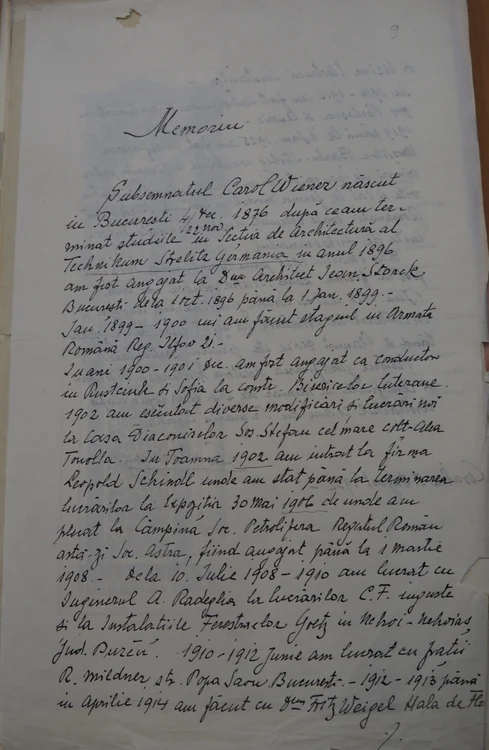 9
Memoriu
Subsemnatul Carol Wiener născut
in Bucuresti 4 Dec. 1876 după ceam ter-
22 Nov
minat studiile in Sectia de Architectură al
Technikum Strelitz Germania in anul 1896
am fost angajat la Dnu Architect Jean Storck
Bucuresti dela 1 Oct. 1896 până la 1 Jan. 1899.-
Jan. 1899 - 1900 mi am făcut stagiul in Armata
Română Reg. Ilfov 21.-
In ani 1900-1901 Dec. am fost angajat ca conductor
in Rustciuk si Sofia la constr. Bisericelor luterane.
1902 am esecutat diverse modificări si lucrări noi
la Casa Diaconiselor Sos. Stefan cel mare colt-Alea
Tonolla. In Toamna 1902 am intrat la firma
Leopold Schindl unde am stat până la terminarea
lucrărilor la Expozitia 30 Mai 1906 de unde am
plecat la Câmpina Soc. Petrolifera Regatul Român
astă-zi Soc. Astra, fiind angajat până la 1 Martie
1908.- Dela 10. Iulie 1908-1910 am lucrat cu
Inginerul A. Radeglia la lucrările C.F. inguste
si la Instalatiile Ferestraelor Goetz in Nehoi-Nehoias
Jud. Buzău. 1910-1912 Junie am lucrat cu fratii
R. Mildner str. Popa Savu Bucuresti.- 1912-1913 până
in Aprilie 1914 am făcut cu Dnu Fritz Weigel Hala de Flo
./.